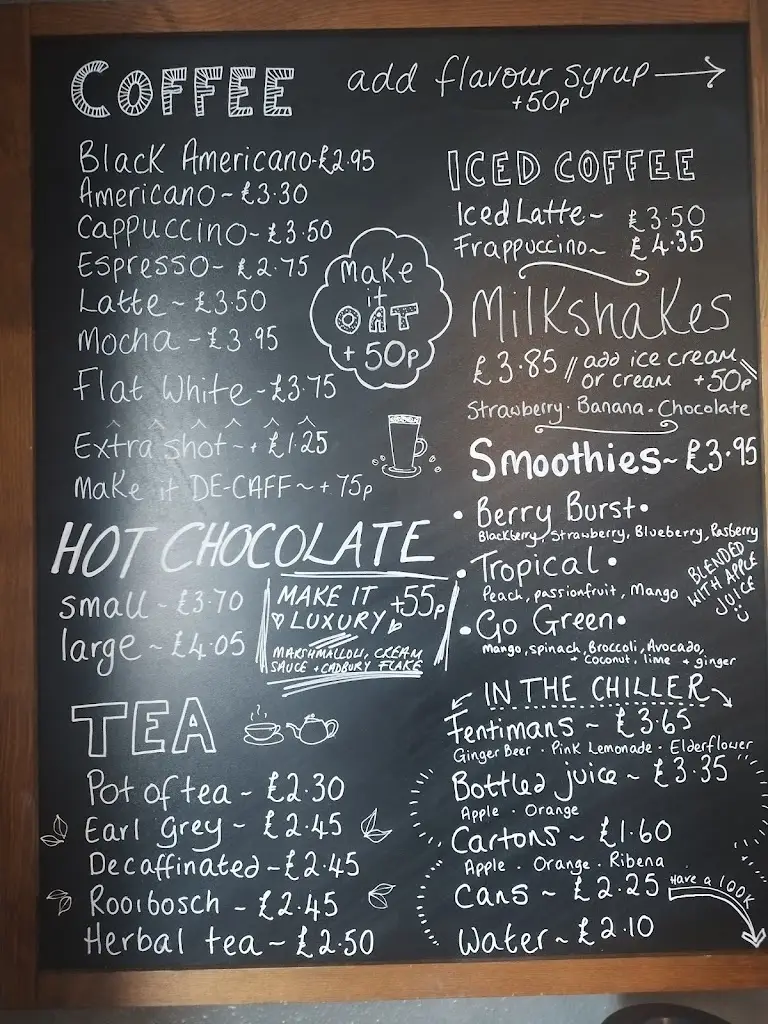 COFFEE
add flavour syrup
+50p
Black Americano-£2.95
Americano~£3.30
Cappuccino-£3.50
Espresso-£2.75
Latte~£3.50
Mocha-£3.95
Flat White-£3.75
Make
it
OAT
+50p
Extra shot~+£1.25
Make it DE-CAFF~+75p
HOT CHOCOLATE
small-£3.70
large~£4.05
MAKE IT
LUXURY
+55p
MARSHMALLOW, CREAM
SAUCE + CADBURY FLAKE
TEA
Pot of tea-£2.30
Earl Grey~£2.45
Decaffinated~£2.45
Rooibosch-£2.45
Herbal tea~£2.50
ICED COFFEE
Iced Latte~ £3.50
Frappuccino~ £4.35
Milkshakes
£3.85 // add ice cream
or cream +50p
Strawberry·Banana·Chocolate
Smoothies~£3.95
•Berry Burst•
Blackberry, Strawberry, Blueberry, Rasberry
•Tropical•
Peach, passionfruit, Mango
•Go Green•
Mango, spinach, Broccoli, Avocado,
+ coconut, lime + ginger
BLENDED
WITH APPLE
JUICE
IN THE CHILLER
Fentimans~£3.65
Ginger Beer·Pink Lemonade·Elderflower
Bottled juice~£3.35
Apple·Orange
Cartons~£1.60
Apple·Orange·Ribena
Cans~£2.25
Have a look
Water~£2.10